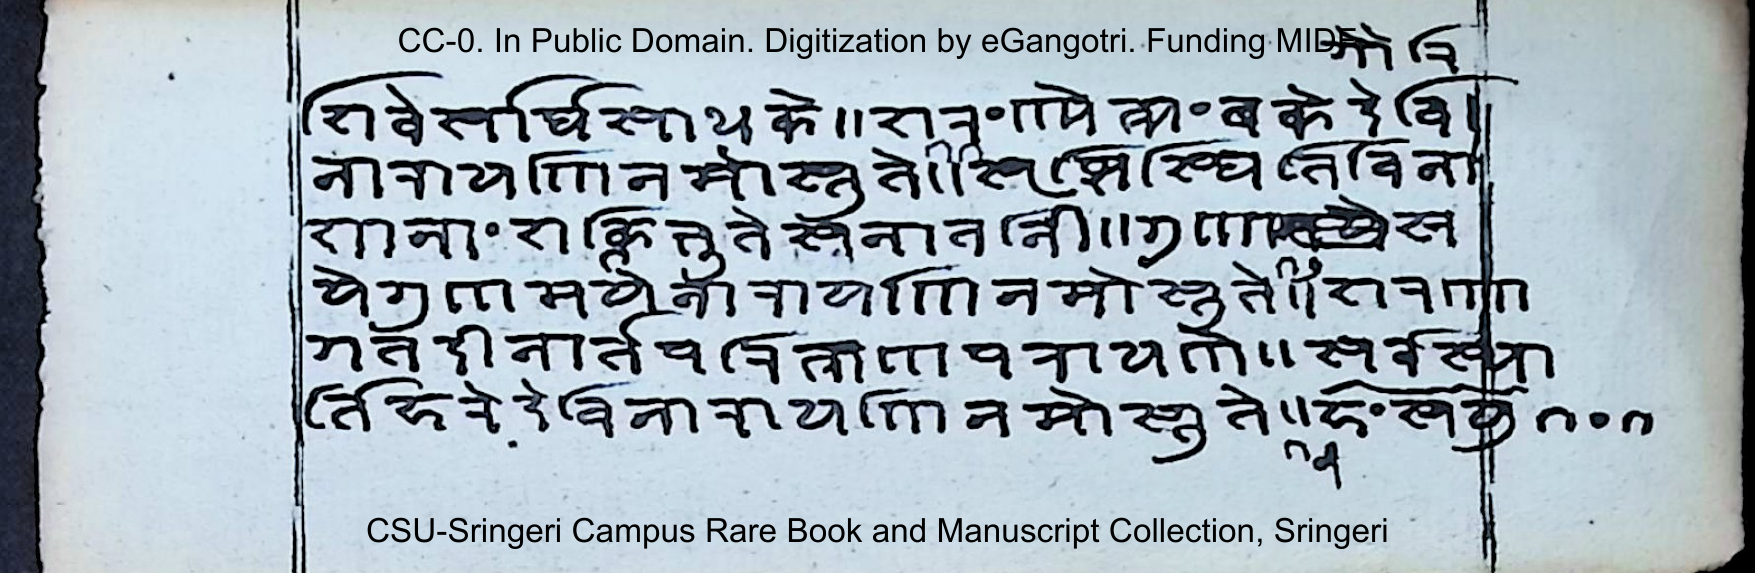 CC-0. In Public Domain. Digitization by eGangotri. Funding MIDF
गौरि
शिवे सर्वार्थसाधके ॥ शरण्ये त्र्यंबके देवि
नारायणि नमोस्तुते ॥ सृष्टिस्थितिविना
शानां शक्तिभूते सनातनि ॥ गुणा
ये गुणमये नारायणि नमोस्तुते ॥ शरणा
गतदीनार्तपरित्राणपरायणे ॥ सर्वस्या
र्तिहरे देवि नारायणि नमोस्तुते ॥ हंसयु
CSU-Sringeri Campus Rare Book and Manuscript Collection, Sringeri